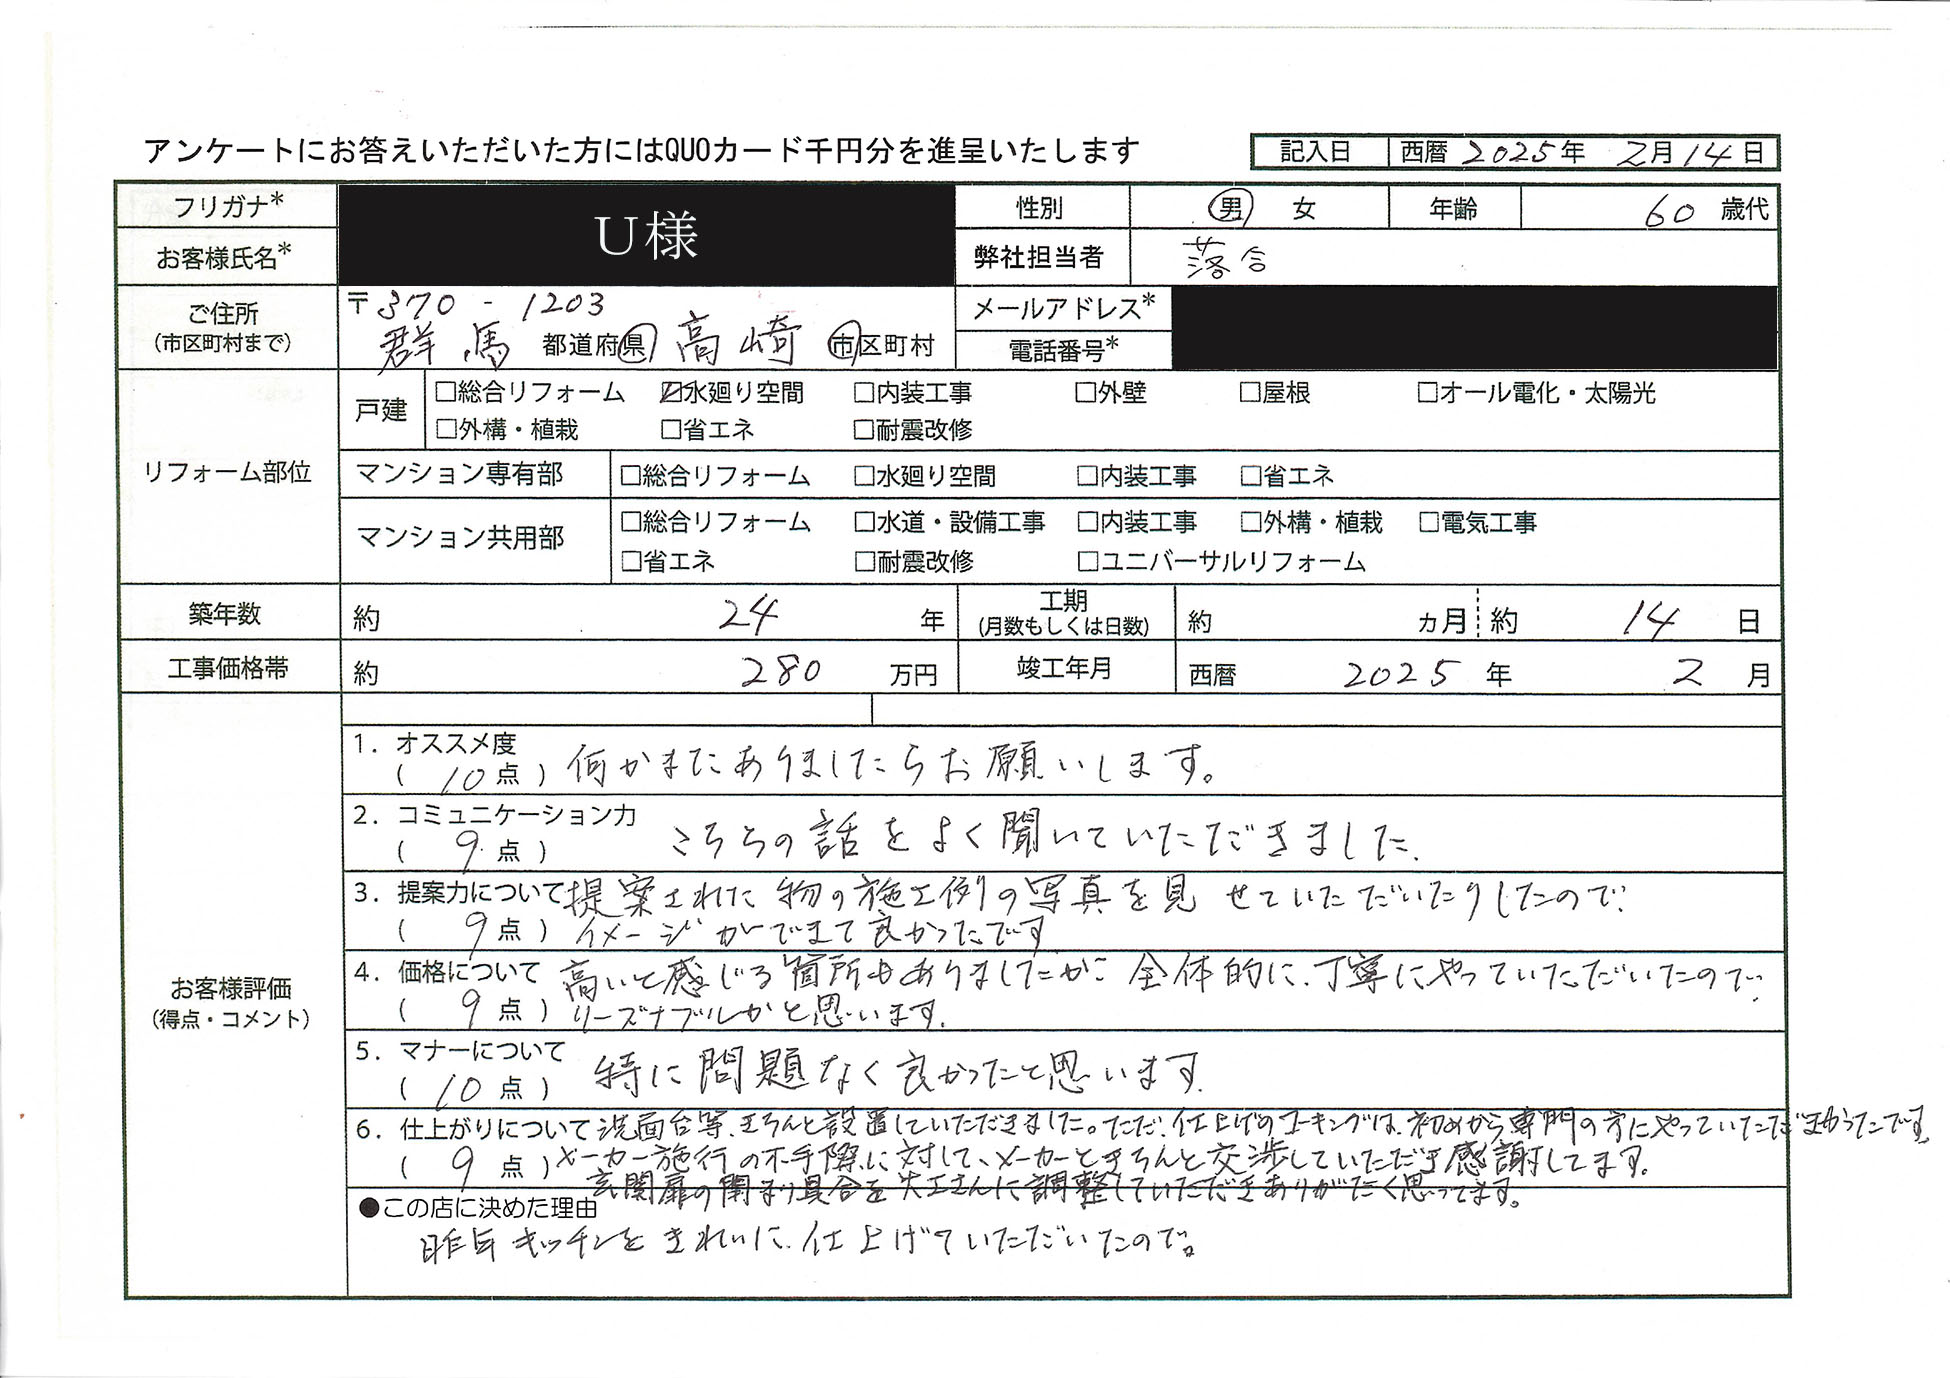 アンケートにお答えいただいた方にはQUOカード千円分を進呈いたします
記入日 西暦 2025年 2月14日
フリガナ* U様 性別 男 女 年齢 60 歳代
お客様氏名* 弊社担当者 落合
ご住所 (市区町村まで) 〒370 - 1203 メールアドレス*
群馬 都道府県 高崎 市区町村 電話番号*
リフォーム部位
戸建 □総合リフォーム ☑水廻り空間 □内装工事 □外壁 □屋根 □オール電化・太陽光
□外構・植栽 □省エネ □耐震改修
マンション専有部 □総合リフォーム □水廻り空間 □内装工事 □省エネ
マンション共用部 □総合リフォーム □水道・設備工事 □内装工事 □外構・植栽 □電気工事
□省エネ □耐震改修 □ユニバーサルリフォーム
築年数 約 24 年 工期 (月数もしくは日数) 約 ヵ月 約 14 日
工事価格帯 約 280 万円 竣工年月 西暦 2025 年 2 月
お客様評価
(得点・コメント)
1. オススメ度
( 10 点 ) 何かまたありましたらお願いします。
2. コミュニケーション力
( 9 点 ) こちらの話をよく聞いていただきました.
3. 提案力について 提案された物の施工例の写真を見せていただいたりしたので、
( 9 点 ) イメージができて良かったです
4. 価格について 高いと感じる箇所もありましたが、全体的に、丁寧にやっていただいたので、
( 9 点 ) リーズナブルかと思います.
5. マナーについて
( 10 点 ) 特に問題なく良かったと思います.
6. 仕上がりについて 洗面台等、きちんと設置していただきました。ただ、仕上げのコーキングは、初めから専門の方にやっていただきたかったです。
( 9 点 ) メーカー施行の不手際に対して、メーカーときちんと交渉していただき感謝してます.
玄関扉の閉まり具合を大工さんに調整していただきありがたく思ってます。
●この店に決めた理由
昨年キッチンをきれいに、仕上げていただいたので。